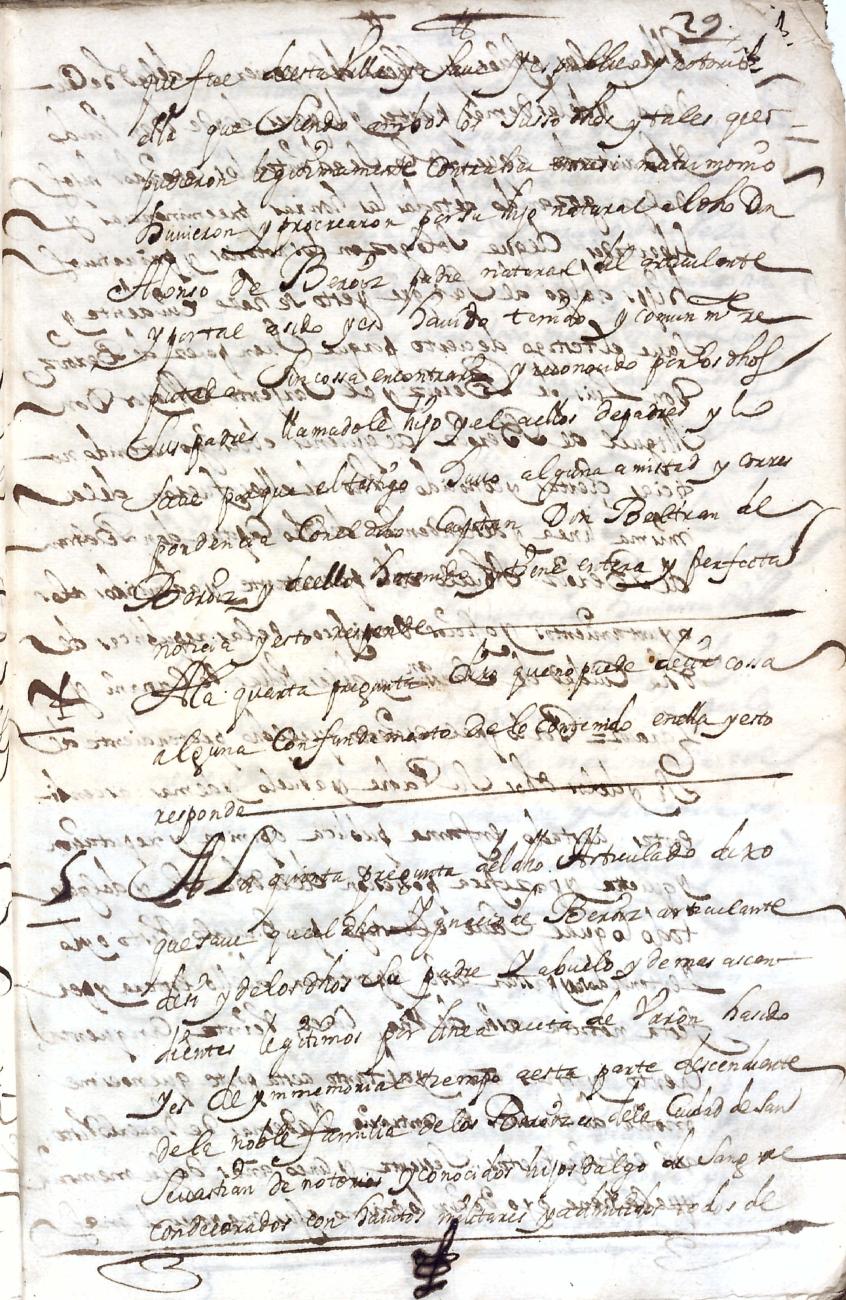 29.
que fue de esta Villa y save y es publico y notorio
ella que siendo ambos los susso dhos y tales que
pudieron legitimamente contraher matrimonio
huvieron y procrearon por su hijo natural a el dho Dn
Alonso de Beroiz padre natural del articulante
y por tal a sido y es havido tenido y comun mte re
putado sin cossa en contrario y reconocido por los dhos
sus padres llamadole hijo y el a ellos de padres y lo
save porque el testigo tuvo alguna amistad y corres
pondencia con el dho Capitan Don Beltran de
Beroiz y de ello tiene entera y perfecta
noticia y esto responde
4 A la quarta pregunta Dixo que no puede decir cossa
alguna con fundamento de lo contenido en ella y esto
responde
5 A la quinta pregunta del dho Articulado dixo
que save que el dho Ygnacio de Beroiz articulante
de si y de los dhos su padre y abuelo y demas ascen
dientes legitimos por linea recta de Varon ha sido
y es de ymmemorial tiempo a esta parte descendiente
de la noble familia de los Beroiz de la Ciudad de San
Sevastian de notorios y conocidos hijos dalgo de sangre
condecorados con havitos militares y admitidos todos de